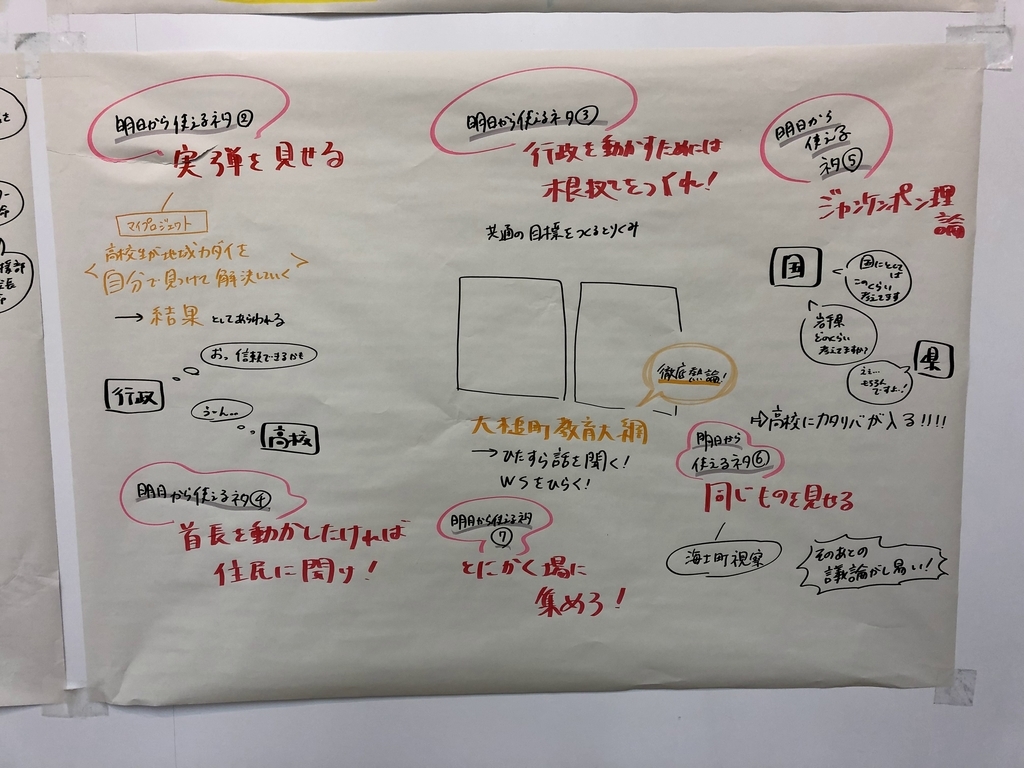 明日から使えるネタ②
実弾を見せる
マイプロジェクト
高校生が地域カダイを
自分で見つけて解決していく
→結果としてあらわれる
お。信頼できるかも
行政
うーん…
高校
明日から使えるネタ③
行政を動かすためには
木根拠をつくれ!
共通の目標をつくるとりくみ
徹底熱論!
大槌町教育大綱
→ひたすら話を聞く!
WSをひらく!
明日から使えるネタ④
首長を動かしたければ
住民に聞け!
明日から
使える
ネタ⑤
ジャンケンポン理
論
国
国にとっては
このくらい
考えてます
岩手県
どのくらい
考えてますか?
県
えぇ…
もちろん
ですよ…!
⇨高校にカタリバが入る!!!!
明日から
使えるネタ⑥
同じものを見せる
海士町視察
そのあとの
議論がし易い!
明日から使えるネタ
⑦
とにかく場に
集めろ!